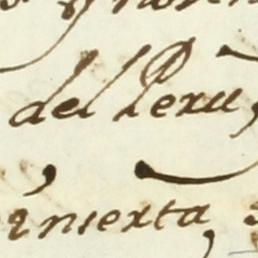 del Peru,
inserta,